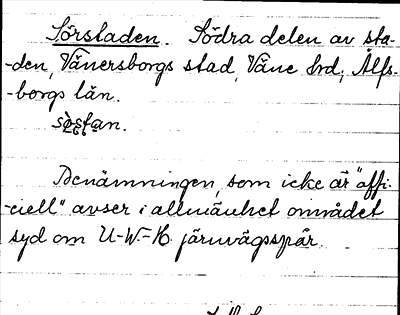 Sörstaden. Södra delen av sta-
-den, Vänersborgs stad, Väne hrd, Älfs-
-borgs län.
Benämningen, som icke är "offi-
-ciell" avser i allmänhet området
syd om U-W.-H. järnvägsspår.